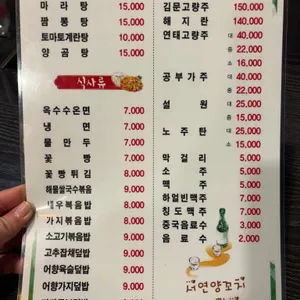 마라탕 15,000
짬뽕탕 15,000
토마토계란탕 10,000
양곰탕 15,000
식사류
옥수수온면 7,000
냉면 7,000
물만두 7,000
꽃빵 7,000
꽃빵튀김 8,000
해물쌀국수볶음 9,000
새우볶음밥 8,000
가지볶음밥 8,000
소고기볶음밥 9,000
고추잡채덮밥 9,000
어향육슬덮밥 9,000
어향가지덮밥 9,000
9,000
김문고량주 150,000
해지란 140,000
연태고량주 대 40,000
중
22,000
소 16,000
공부가주 대 40,000
중 22,000
설원 대 25,000
중
노주탄 대 25,000
소 15,000
막걸리 5,000
소주 5,000
맥주 5,000
하얼빈맥주 7,000
칭도맥주 7,000
중국음료수 3,000
음료수 2,000
서연양꼬치